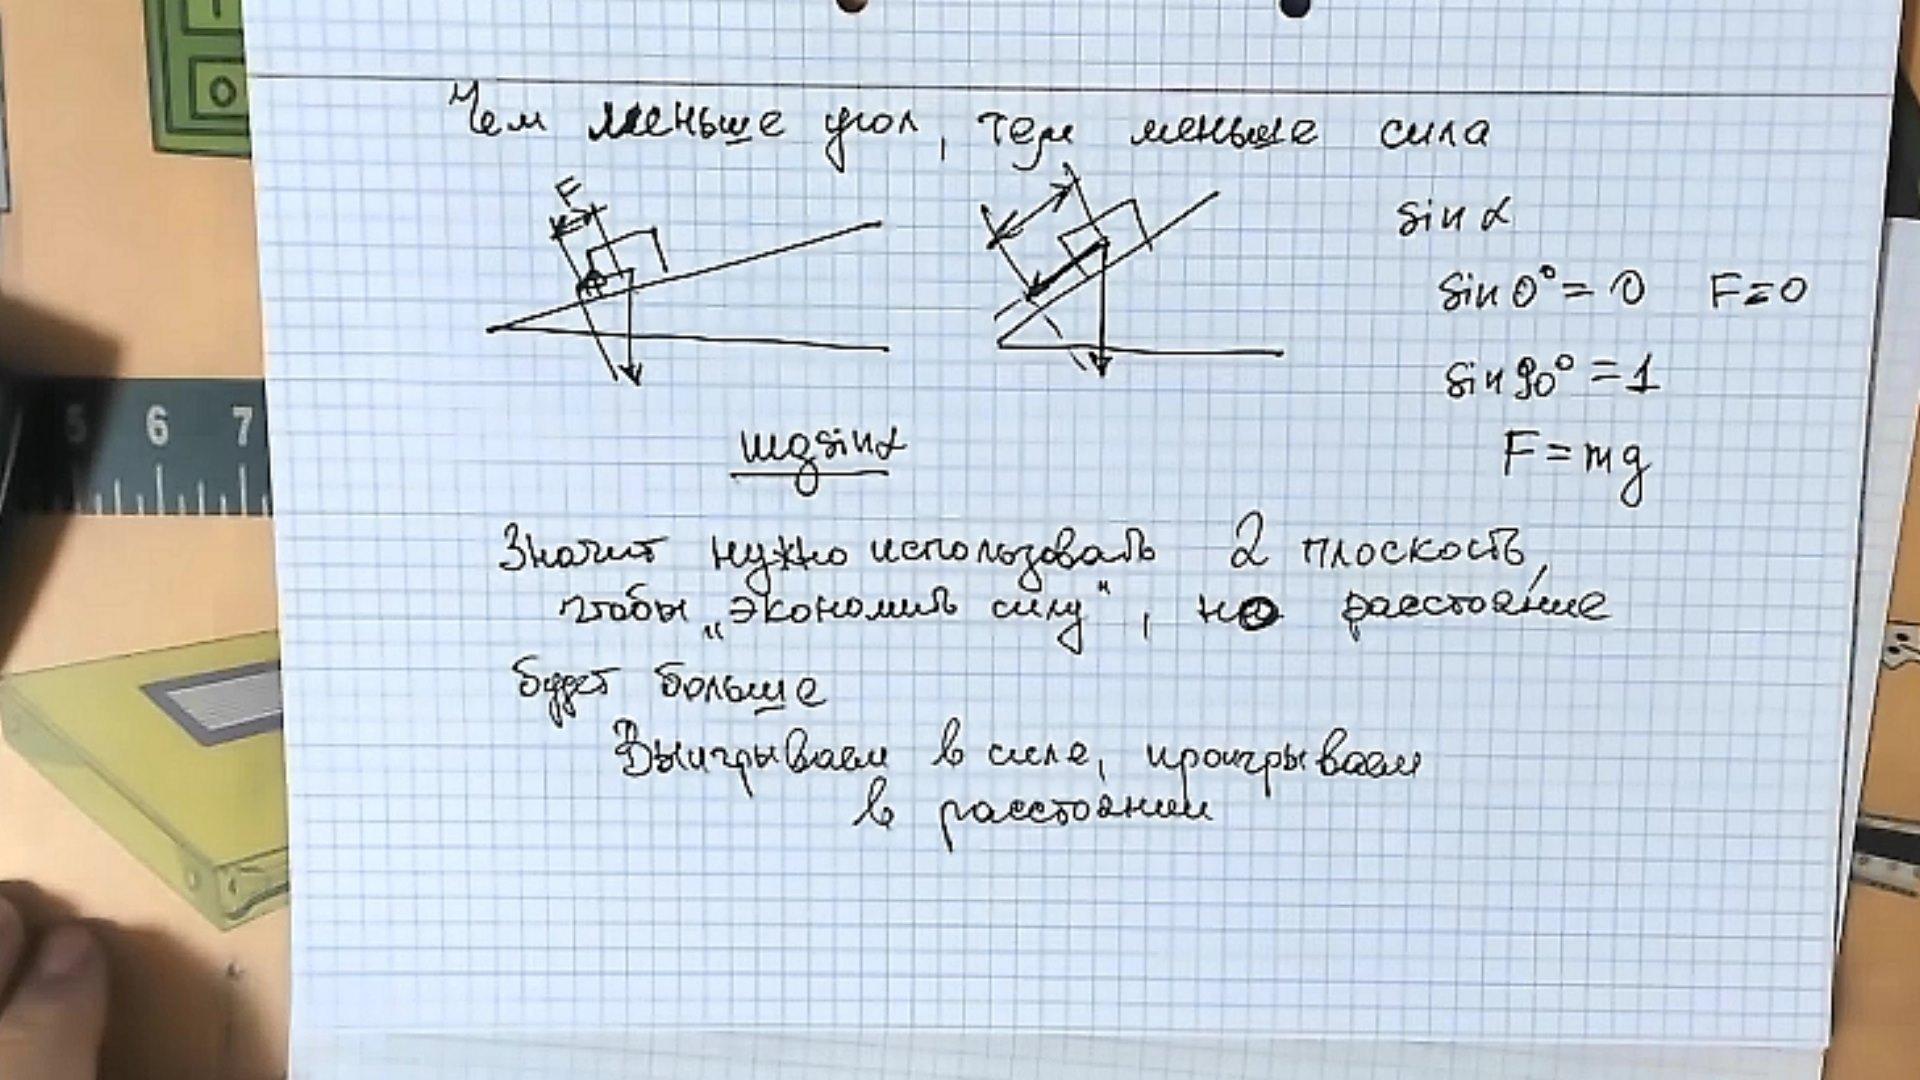 Чем меньше угол, тем меньше сила
F
sin α
sin 0° = 0 F = 0
sin 90° = 1
F = mg
mg sin α
Значит нужно использовать 2 плоскость,
чтобы „экономить силу", но расстояние
будет больше
Выигрываем в силе, проигрываем
в расстоянии
5 6 7
0